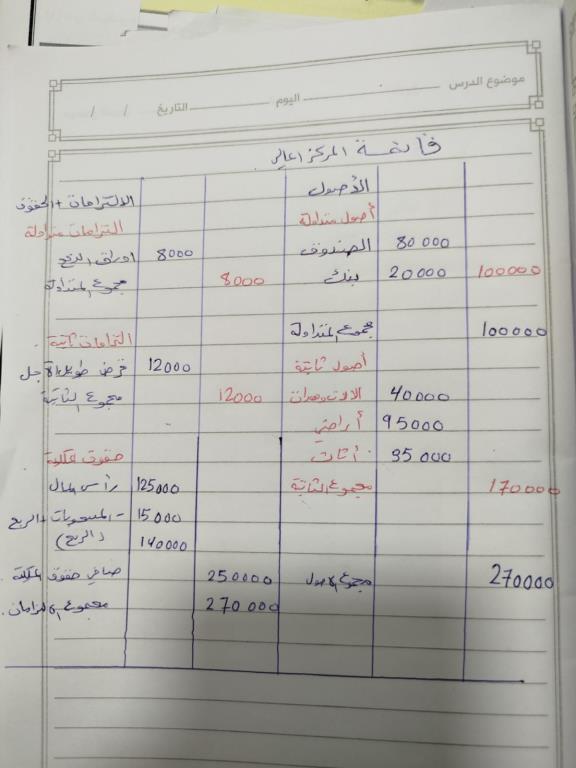 موضوع الدرس اليوم التاريخ / /
قائمة المركز المالي
الأصول
أصول متداولة
الصندوق 80 000
بنك 20000 100000
مجموع المتداولة 100000
أصول ثابتة
الالات ومعدات 40000
أراضي 95000
أثاث 35 000
مجموع الثابتة 170000
مجموع الاصول 270000
الالتزامات + الحقوق
التزامات متداولة
اوراق الدفع 8000
مجموع المتداولة 8000
التزامات ثابتة
قرض طويل الاجل 12000
مجموع الثابتة 12000
حقوق ملكية
رأس المال 125000
- المسحوبات + الربح 15000
(الربح) 140000
صافي حقوق الملكية 250000
مجموع الالتزامات 270 000